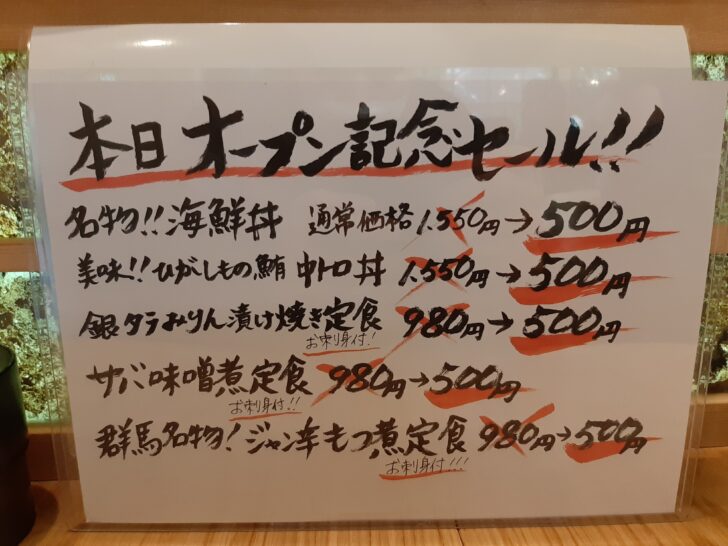 本日オープン記念セール!!
名物!!海鮮丼 通常価格1.550円→500円
美味!!ひがしもの鮪 中トロ丼 1.550円→500円
銀タラみりん漬け焼き定食 980円→500円
お刺身付!
サバ味噌煮定食 980円→500円
お刺身付!!
群馬名物!ジャン辛もつ煮定食 980円→500円
お刺身付!!!